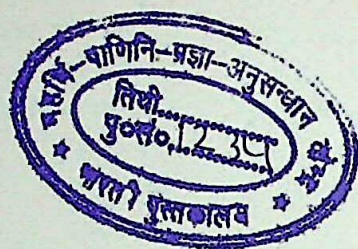 महर्षि-पाणिनि-प्रज्ञा-अनुसन्धान
तिथी..............
पु०सं०.
★ भारती पुस्तकालय ★